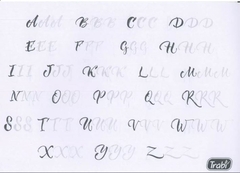 AAA BBB CCC DDD
EEE FFF GGG HHH
III JJJ KKK LLL MMM
NNN OOO PPP QQQ RRR
SSS TTT UUU VVV WWW
XXX YYY ZZZ
Trabi